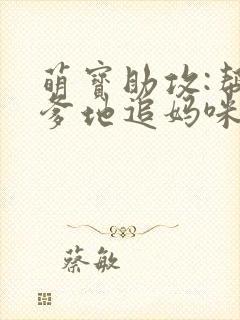 萌宝助攻:帮
爹地追妈咪
蔡敏